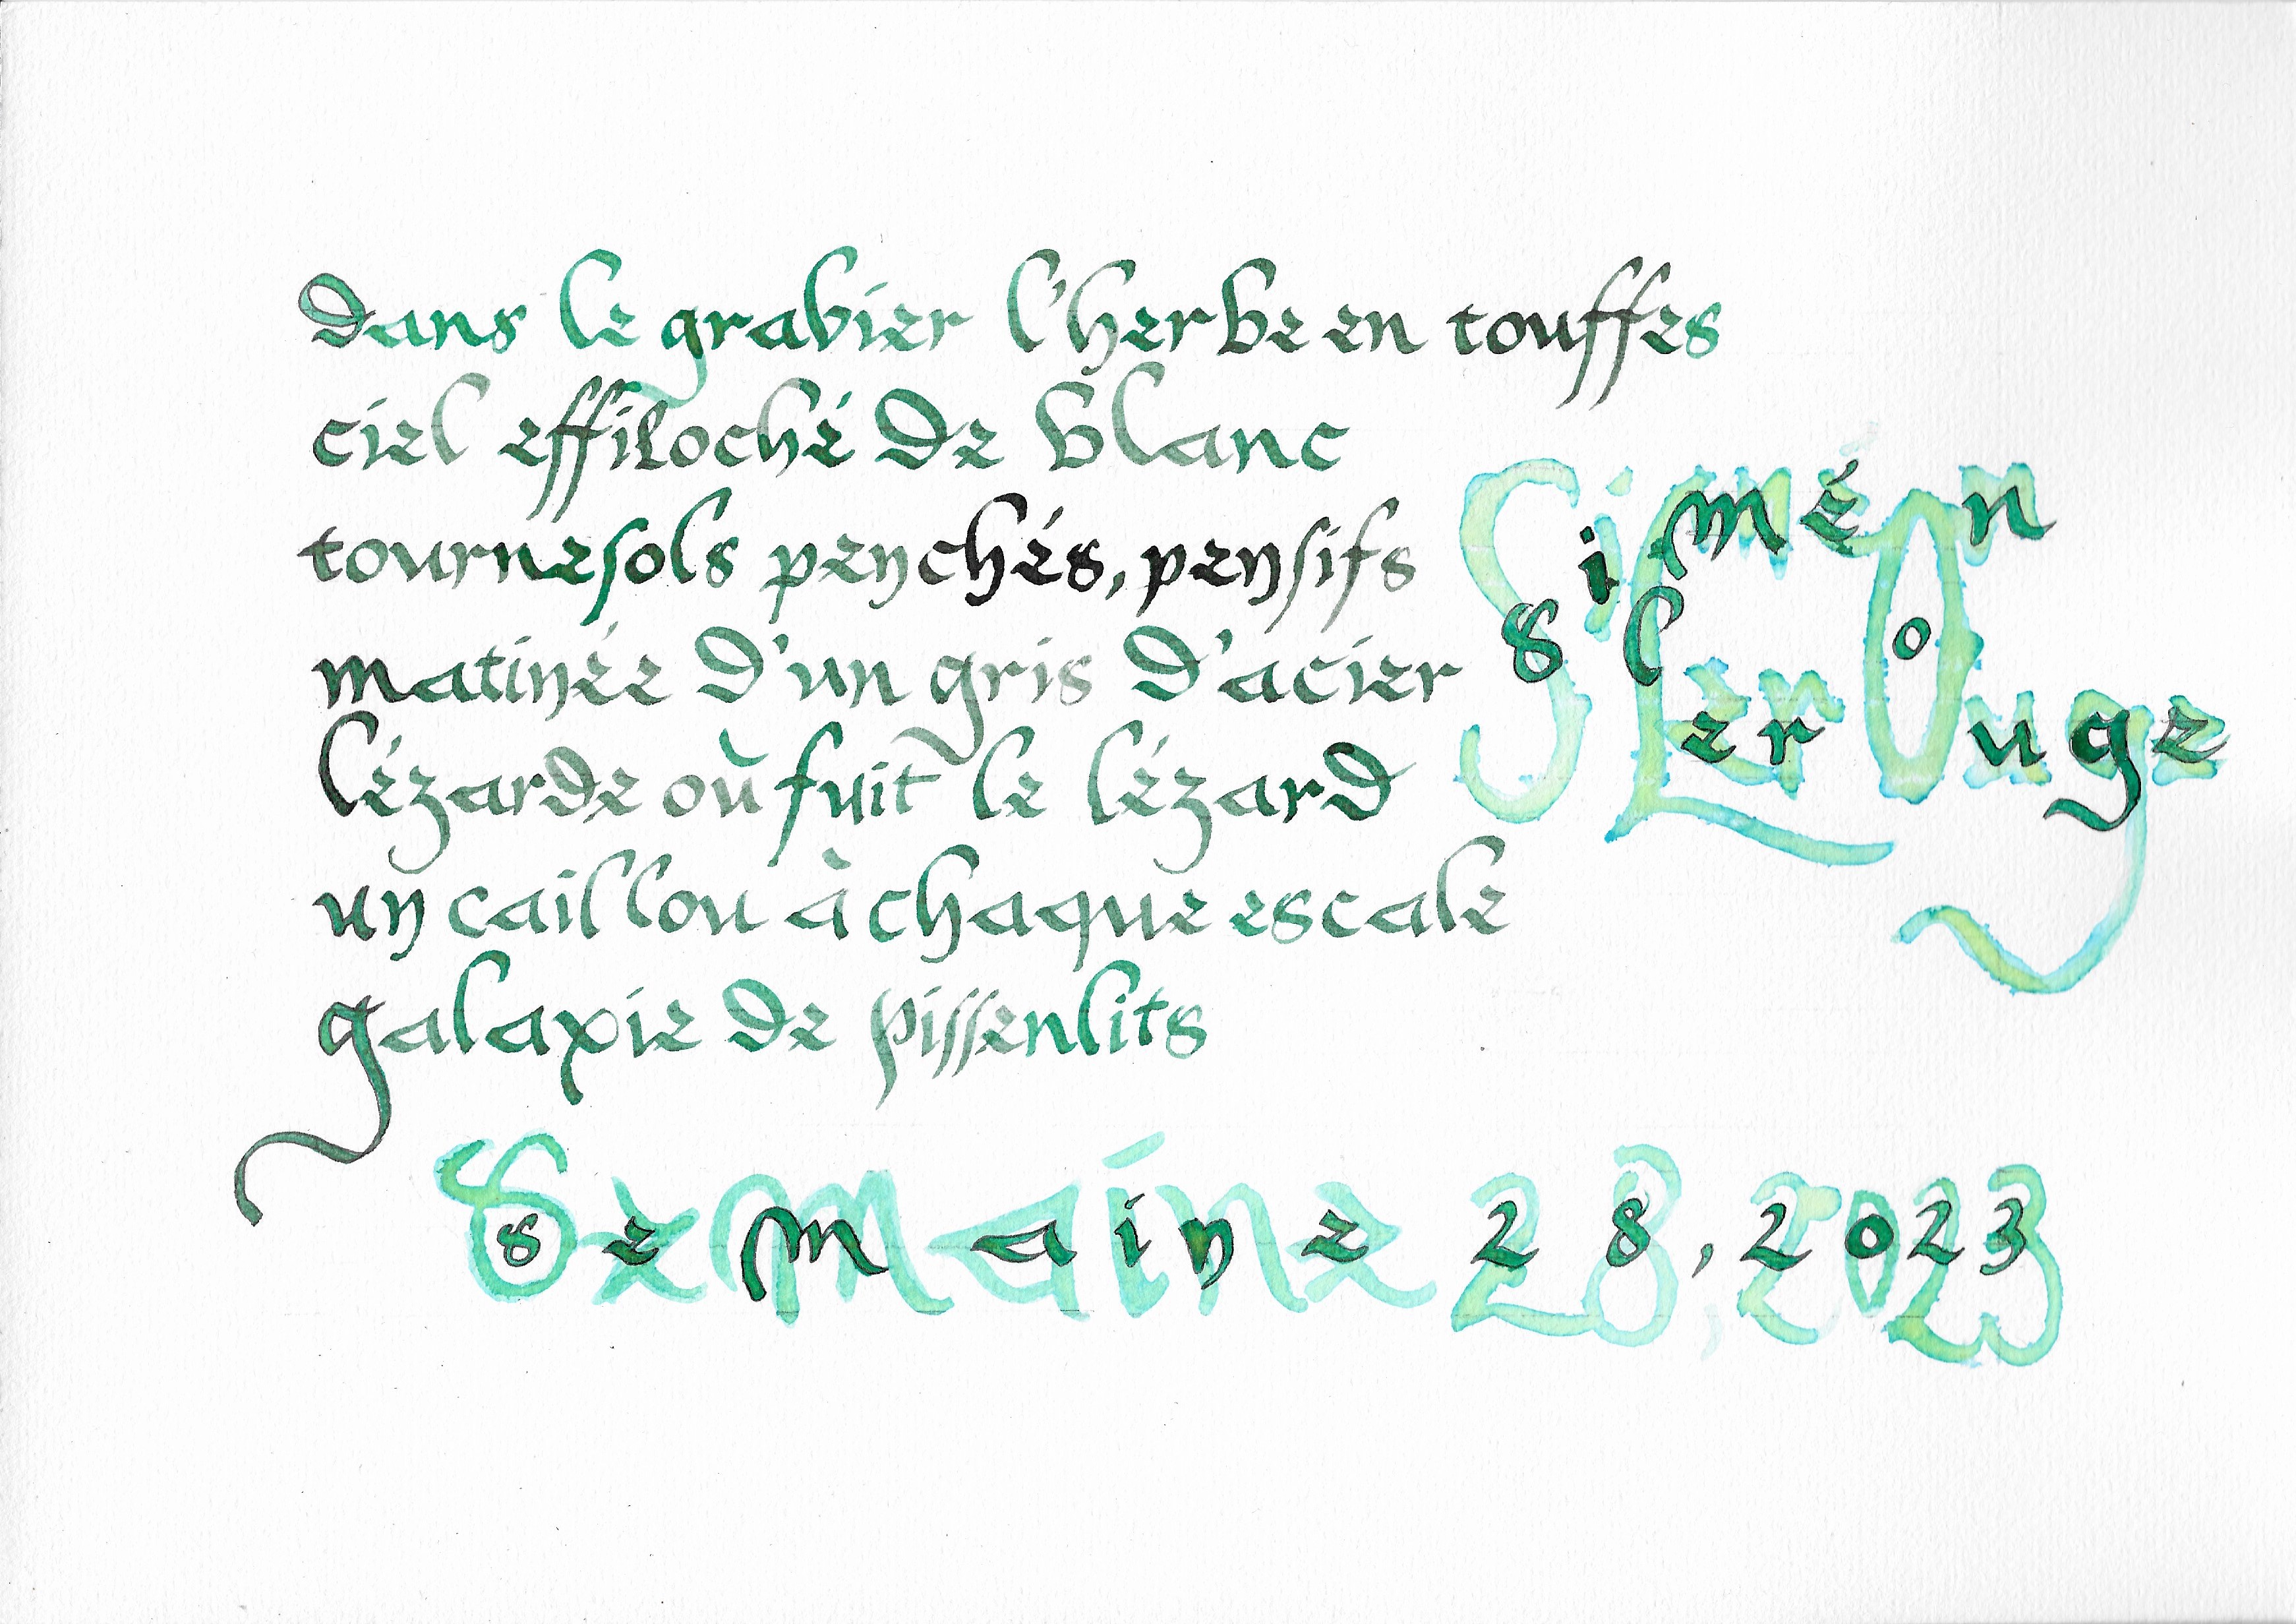 dans le gravier l'herbe en touffes
ciel effiloché de blanc
tournesols penchés, pensifs
matinée d'un gris d'acier
lézarde où fuit le lézard
un caillou à chaque escale
galaxie de pissenlits
Siméon
Lerouge
semaine 28, 2023